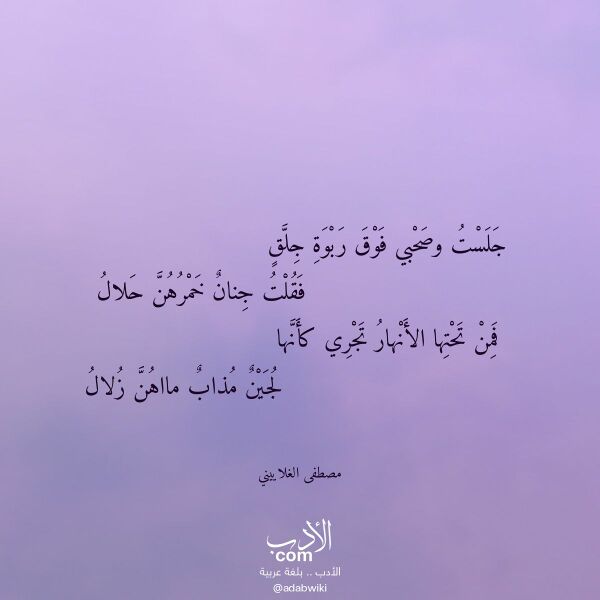 جَلَسْتُ وصَحْبي فَوْقَ رَبْوَةِ جِلَّقٍ
فَقُلْتُ جِنانٌ خَمْرُهُنَّ حَلالُ
فَمِنْ تَحْتِها الأَنْهارُ تَجْرِي كأَنَّها
لُجَيْنٌ مُذابٌ مااهُنَّ زُلالُ
مصطفى الغلاييني
الأدب
.com
الأدب .. بلغة عربية
@adabwiki